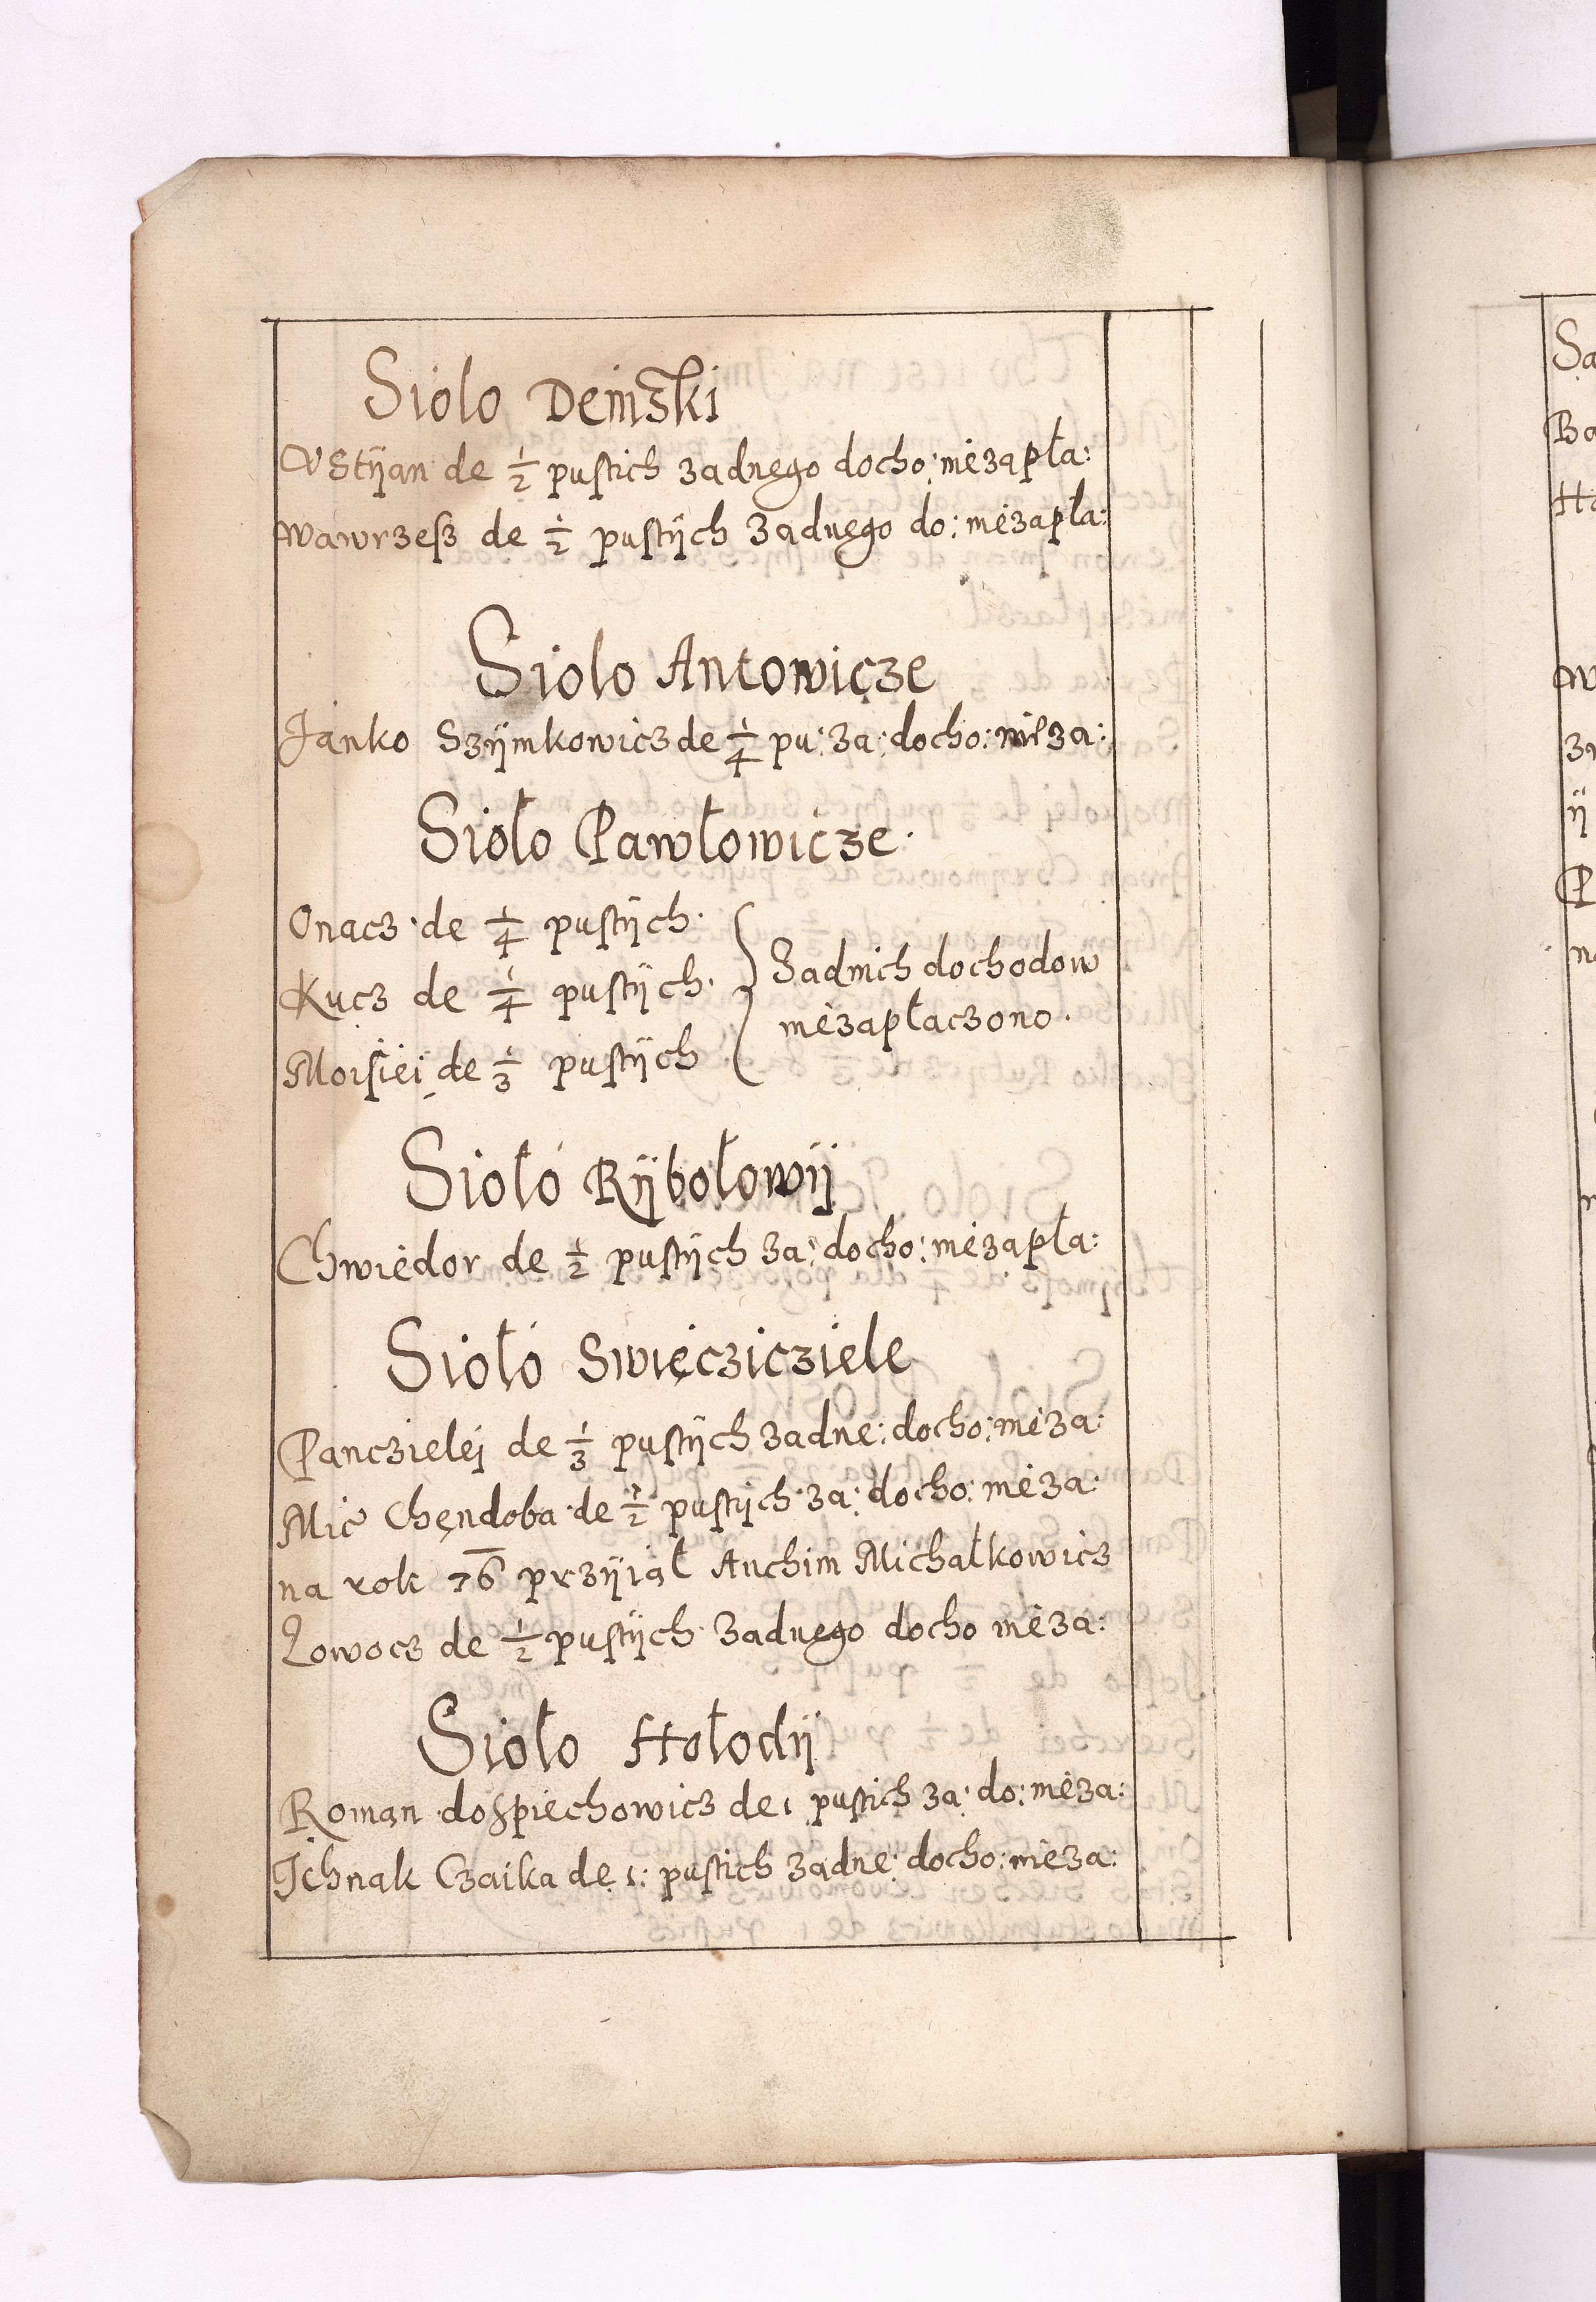 Siolo Deniski
Ustijan de 1/2 pustich zadnego docho: niezapła:
Wawrzesz de 1/2 pustijch zadnego do: niezapła:
Siolo Antowicze
Janko Szijmkowicz de 1/4 pu: za: docho: nieza:
Sioło Pawłowicze
Onacz de 1/4 pustijch
Kucz de 1/4 pustijch
Zadnich dochodow
Moisiei de 1/3 pustijch
niezapłaczono
Sioło Rijbołowij
Chwiedor de 1/2 pustijch za: docho: niezapła:
Sioło Swięcziciele
Panczielej de 1/3 pustijch zadne: docho: nieza:
Mic Chendoba de 1/2 pustijch za: docho: nieza:
na rok 76 przijiął Auchim Michałkowicz
Łowocz de 1/2 pustijch zadnego docho nieza:
Sioło Hołodij
Roman dospiechowicz de 1 pustich za: do: nieza:
Ichnak Czaika de 1: pustich zadne: docho: nieza:
Sa
Ba
Ha